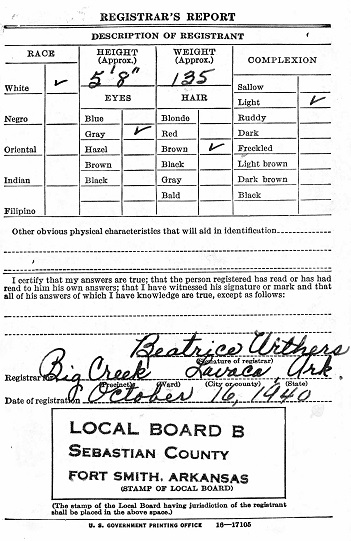 REGISTRAR'S REPORT
DESCRIPTION OF REGISTRANT
RACE HEIGHT (Approx.) WEIGHT (Approx.) COMPLEXION
5'8" 135
White ✓ Sallow
EYES HAIR Light ✓
Negro Blue Blonde Ruddy
Gray ✓ Red Dark
Oriental Hazel Brown ✓ Freckled
Brown Black Light brown
Indian Black Gray Dark brown
Bald Black
Filipino
Other obvious physical characteristics that will aid in identification
I certify that my answers are true; that the person registered has read or has had
read to him his own answers; that I have witnessed his signature or mark and that
all of his answers of which I have knowledge are true, except as follows:
Beatrice Withers
(Signature of registrar)
Registrar for Big Creek Lavaca, Ark.
(Precinct) (Ward) (City or county) (State)
Date of registration October 16, 1940
LOCAL BOARD B
SEBASTIAN COUNTY
FORT SMITH, ARKANSAS
(STAMP OF LOCAL BOARD)
(The stamp of the Local Board having jurisdiction of the registrant
shall be placed in the above space.)
U. S. GOVERNMENT PRINTING OFFICE 16—17105